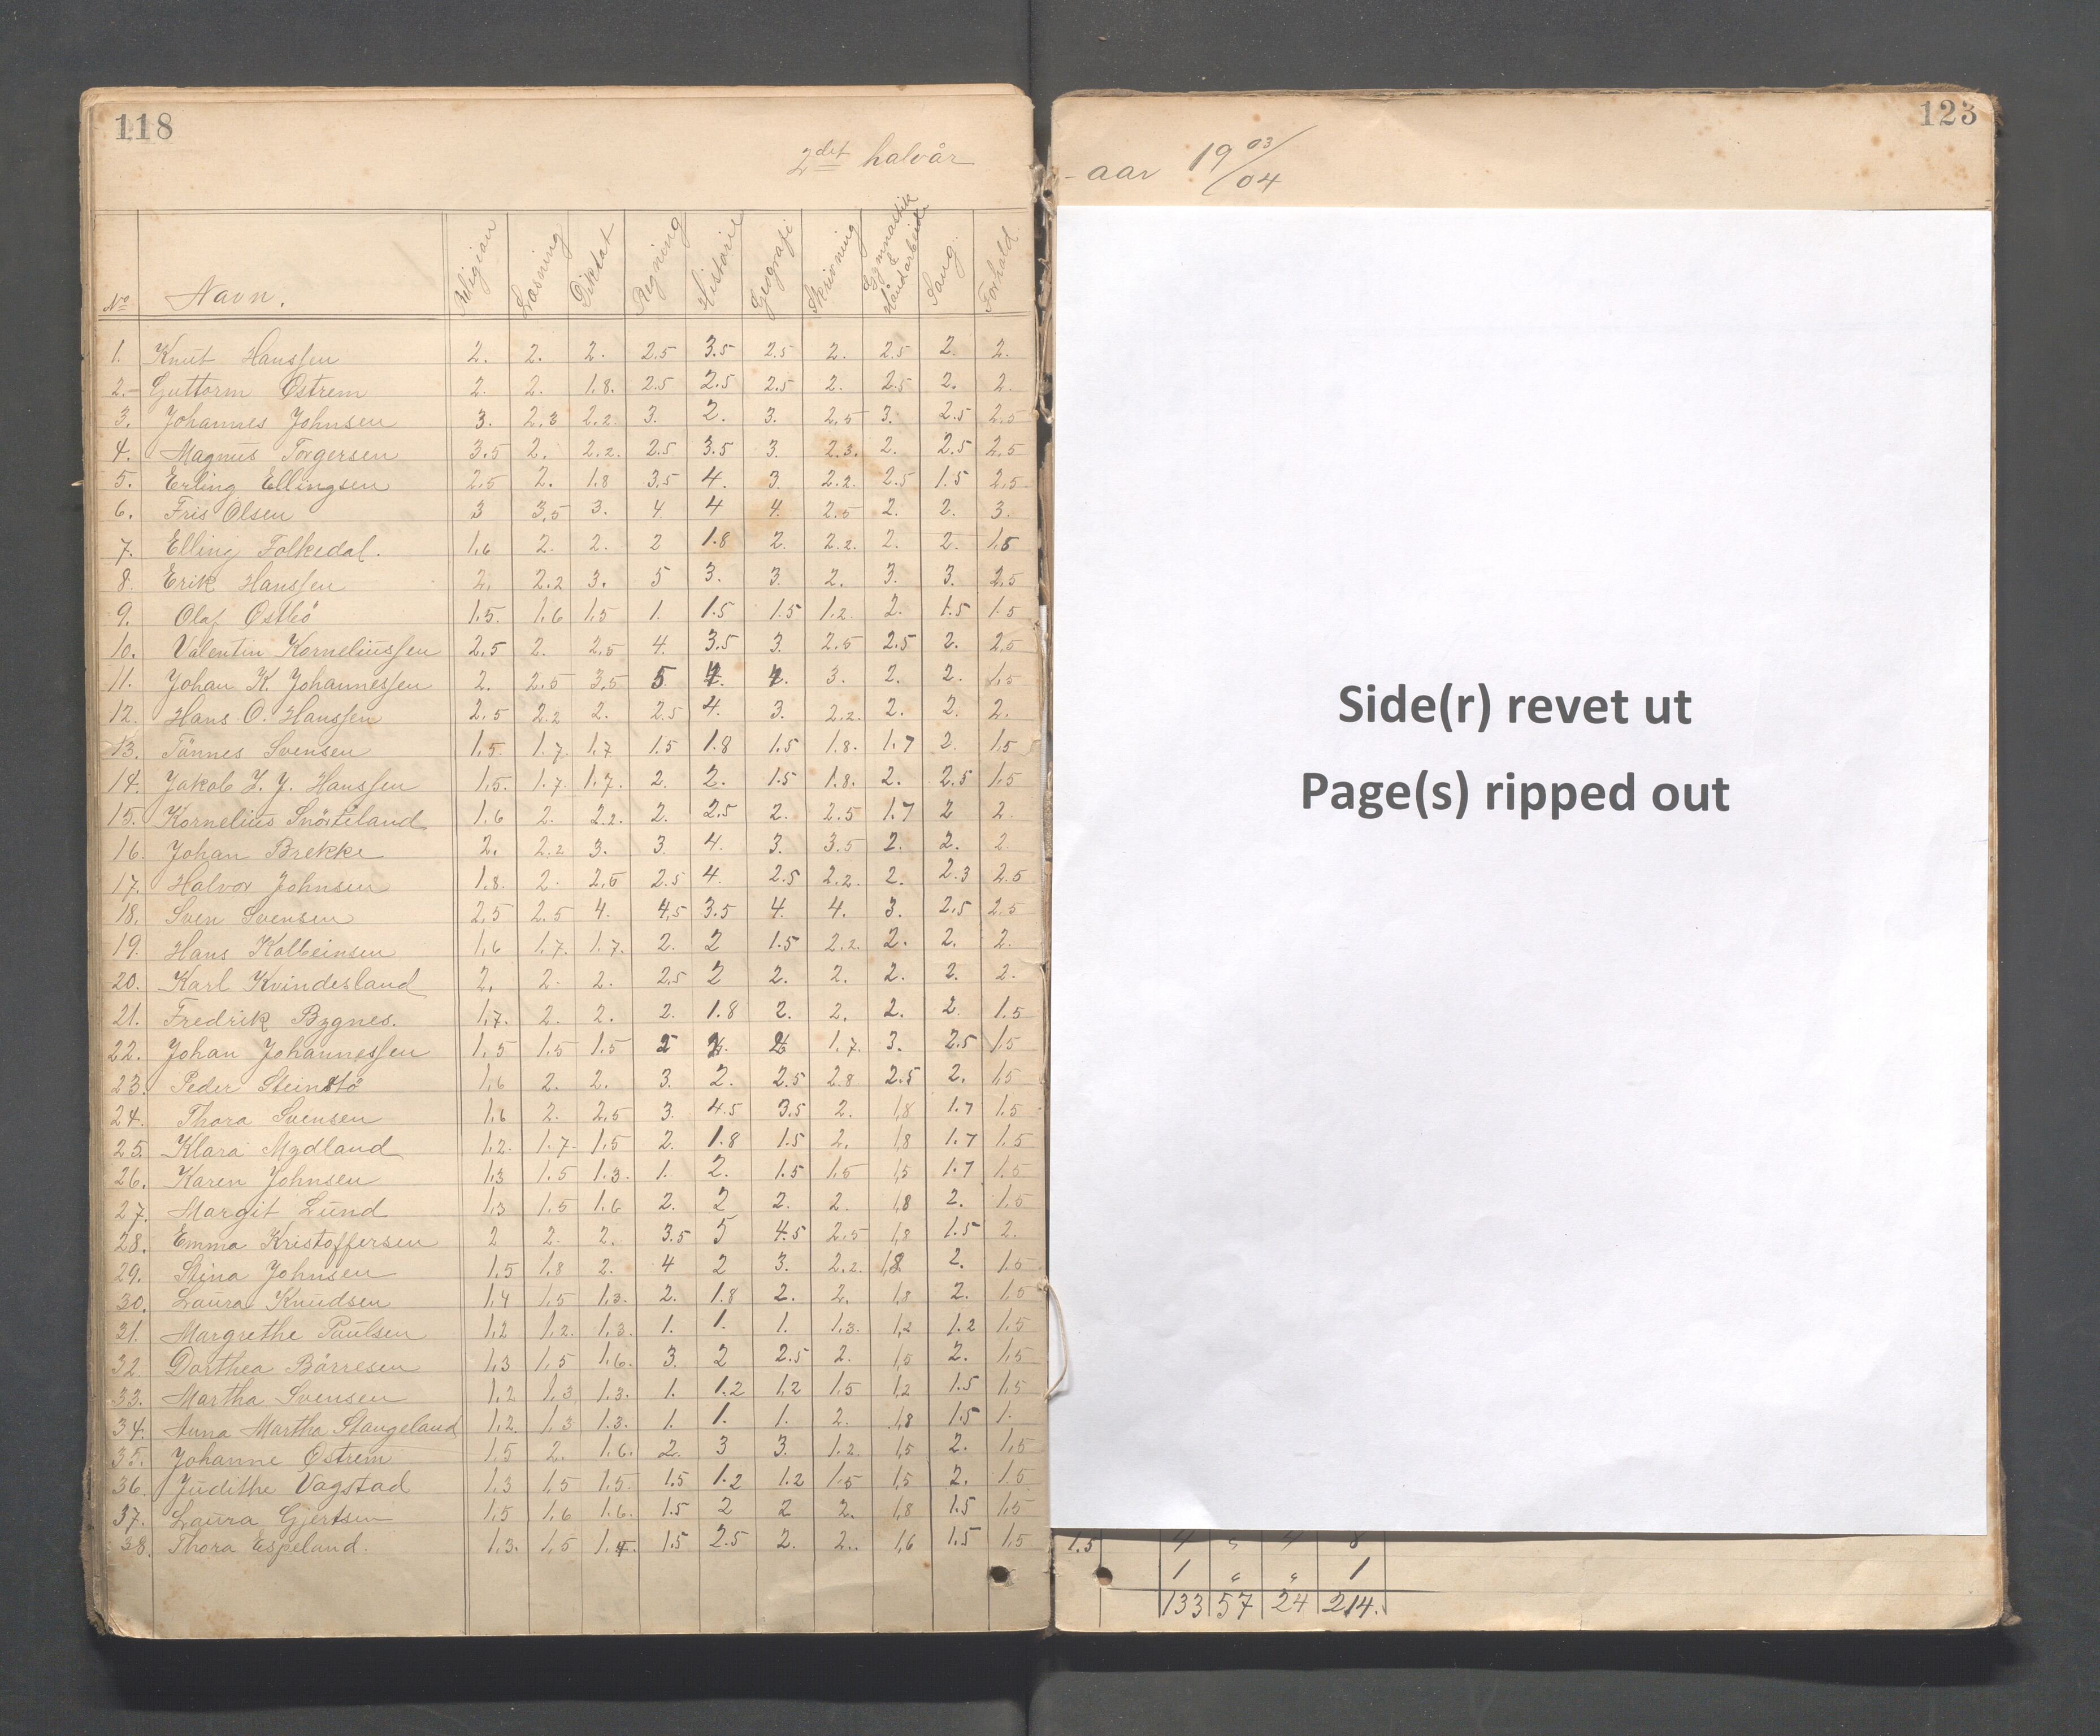 118
2det halvår
No Navn. Religion Læsning Diktat Regning Historie Geografi Skrivning Gymnastik & Håndarbeide Sang. Forhold.
1. Knut Hanssen 2. 2. 2. 2.5 3.5 2.5 2. 2.5 2. 2.
2. Guttorm Østrem 2. 2. 1.8. 2.5 2.5 2.5 2. 2.5 2. 2.
3. Johannes Johnsen 3. 2.3 2.2. 3. 2. 3. 2.5 3. 2.5 2.5
4. Magnus Torgersen 3.5 2. 2.2. 2.5 3.5 3. 2.3. 2. 2.5 2.5
5. Erling Ellingsen 2.5 2. 1.8 3.5 4. 3. 2.2. 2.5 1.5 2.5
6. Fris Olsen 3 3.5 3. 4 4 4. 2.5 2. 2. 3.
7. Elling Folkedal. 1.6 2. 2. 2 1.8 2. 2.2. 2. 2. 1.5
8. Erik Hanssen 2. 2.2 3. 5 3. 3. 2. 3. 3. 2.5
9. Olaf Østbö 1.5. 1.6 1.5 1. 1.5 1.5 1.2. 2. 1.5 1.5
10. Valentin Korneliussen 2.5 2. 2.5 4. 3.5 3. 2.5 2.5 2. 2.5
11. Johan K. Johannessen 2. 2.5 3.5 5 4. 4. 3. 2. 2. 1.5
12. Hans O. Hanssen 2.5 2.2 2. 2.5 4. 3. 2.2. 2. 2. 2.
13. Tönnes Svensen 1.5. 1.7. 1.7 1.5 1.8 1.5 1.8. 1.7 2. 1.5
14. Jakob J. J. Hanssen 1.5. 1.7. 1.7. 2. 2. 1.5 1.8. 2. 2.5 1.5
15. Kornelius Snörteland 1.6 2. 2.2. 2. 2.5 2. 2.5 1.7 2 2.
16. Johan Brekke 2. 2.2 3. 3. 4. 3. 3.5 2. 2. 2.
17. Halvor Johnsen 1.8. 2. 2.5 2.5 4. 2.5 2.2. 2. 2.3 2.5
18. Sven Svensen 2.5 2.5 4. 4.5 3.5 4. 4. 3. 2.5 2.5
19. Hans Kolbeinsen 1.6 1.7. 1.7. 2. 2 1.5 2.2. 2. 2. 2.
20. Karl Kvindesland 2. 2. 2. 2.5 2 2. 2. 2. 2. 2.
21. Fredrik Bygnes. 1.7. 2. 2. 2. 1.8 2. 2. 2. 2. 1.5
22. Johan Johannessen 1.5 1.5 1.5 2 2. 2 1.7. 3. 2.5 1.5
23. Peder Steinstö 1.6 2. 2. 3. 2. 2.5 2.8 2.5 2. 1.5
24. Thora Svensen 1.6 2. 2.5 3. 4.5 3.5 2. 1.8 1.7 1.5
25. Klara Mydland 1.2. 1.7. 1.5 2. 1.8 1.5 2. 1.8 1.7 1.5
26. Karen Johnsen 1.3 1.5 1.3. 1. 2. 1.5 1.5 1.5 1.7 1.5
27. Margit Lund 1.3 1.5 1.6 2. 2 2. 2. 1.8 2. 1.5
28. Emma Kristoffersen 2 2. 2. 3.5 5 4.5 2.5 1.8 1.5 2.
29. Stina Johnsen 1.5 1.8 2. 4 2 3. 2.2. 1.8 2. 1.5
30. Laura Knudsen 1.4 1.5 1.3. 2. 1.8 2. 2. 1.8 2. 1.5
31. Margrethe Paulsen 1.2 1.2. 1.3. 1. 1. 1. 1.3. 1.2 1.2 1.5
32. Dorthea Börresen 1.3 1.5 1.6. 3. 2 2.5 2. 1.5 2. 1.5
33. Martha Svensen 1.2 1.3 1.3. 1. 1.2 1.2 1.5 1.2 1.5 1.5
34. Anna Martha Stangeland 1.2. 1.3 1.3. 1. 1. 1. 2. 1.8 1.5 1.
35. Johanne Østrem 1.5 2. 1.6. 2. 3 3. 1.2. 1.5 2. 1.5
36. Judithe Vagstad 1.3 1.5 1.5. 1.5 1.2 1.2 1.5 1.5 2. 1.5
37. Laura Gjertsen 1.5 1.6 1.6. 1.5 2 2 2. 1.8 1.5 1.5
38. Thora Espeland. 1.3. 1.5 1.4. 1.5 2.5 2. 2. 1.6 1.5 1.5
123
- aar 19 03/04
Side(r) revet ut
Page(s) ripped out
1.5 4 " 4 8
1 " " 1
133 57 24 214.